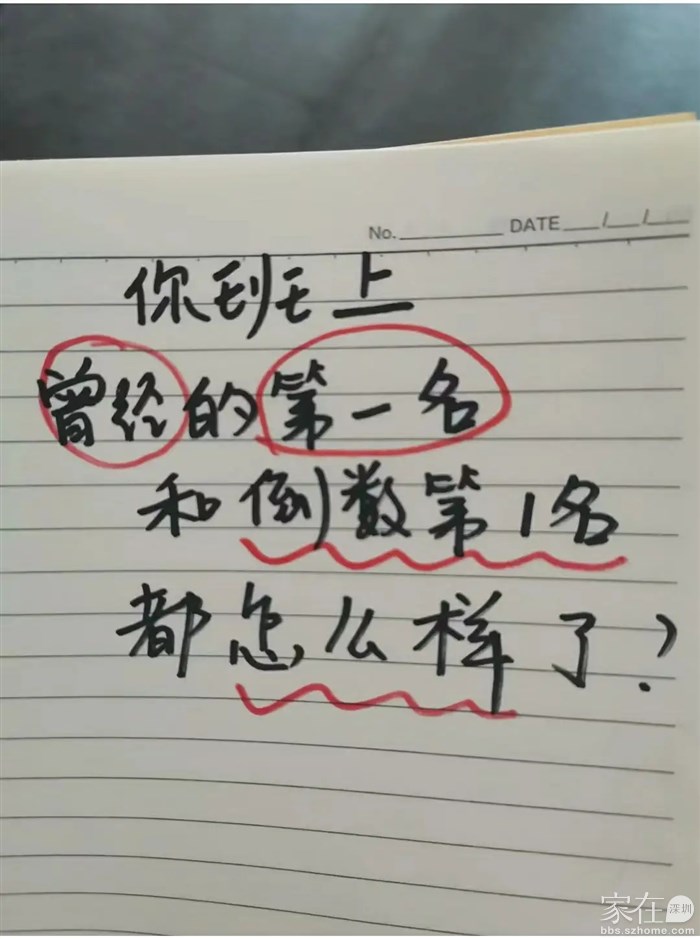 No. DATE / /
你班上
曾经的第一名
和倒数第1名
都怎么样了?
家在深圳
bbs.szhome.com